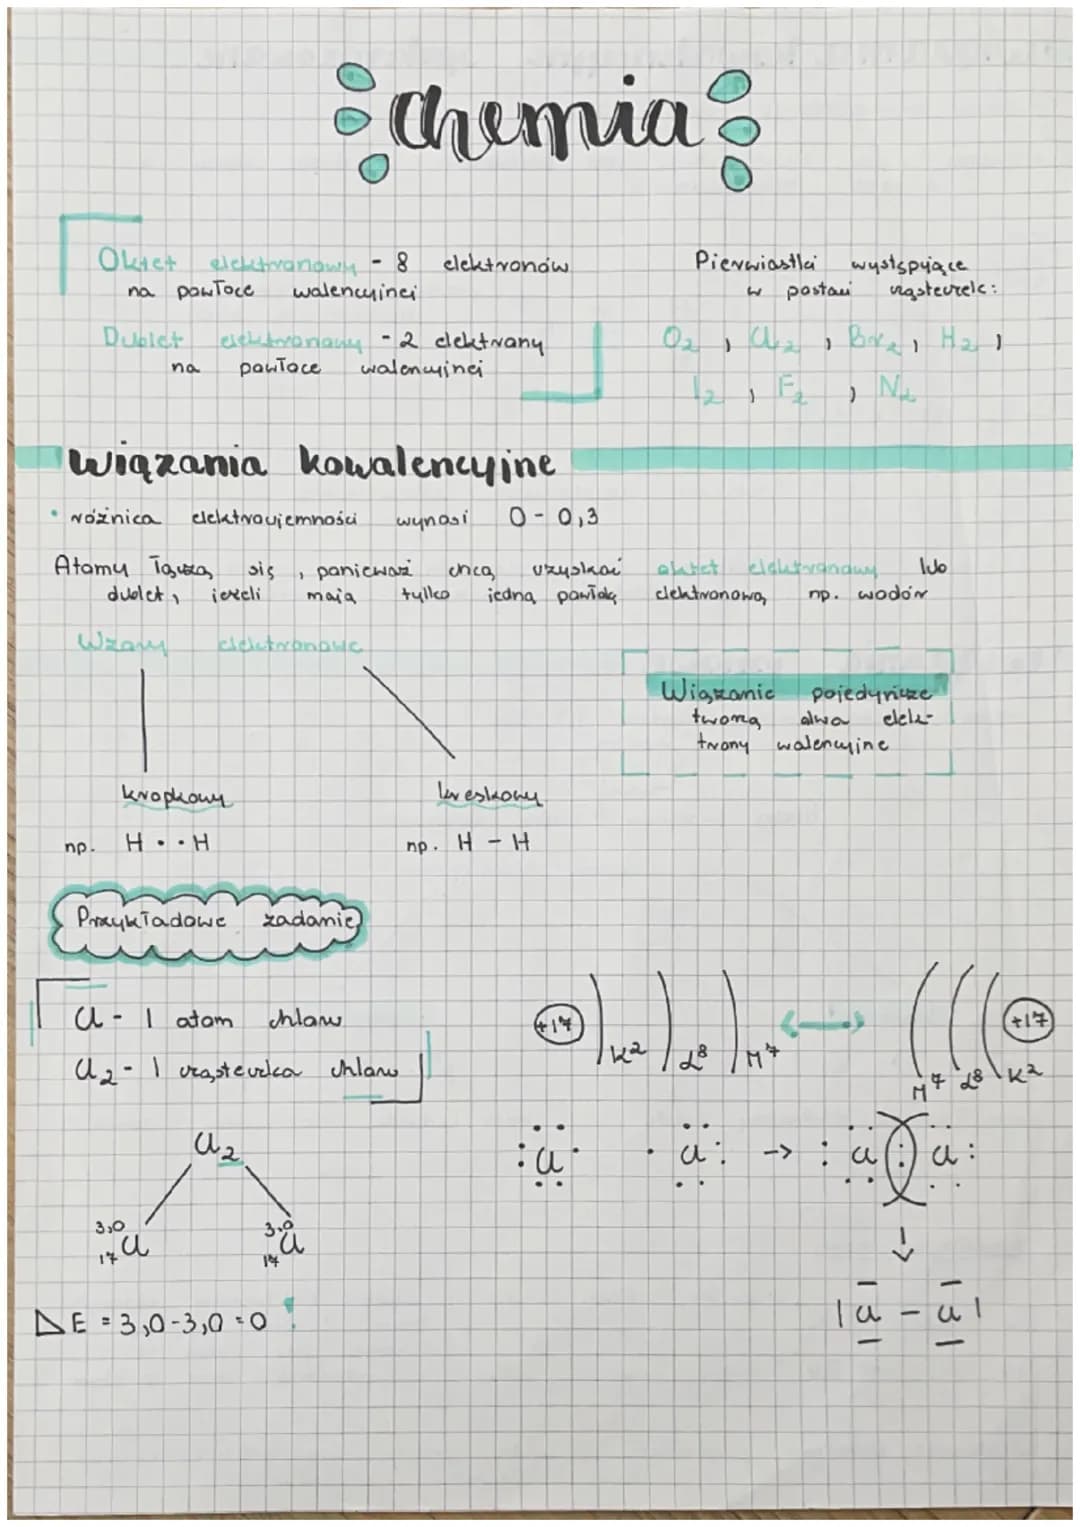 chemia
Oktet elektronowy - 8 elektronów
na powłoce walencyjnej
Dublet elektronowy - 2 elektrony
na powłoce walencyjnej
Pierwiastki występujące
w postaci cząsteczek:
O₂, Cl₂, Br₂, H₂,
I₂, F₂, N₂
Wiązania kowalencyjne
• różnica elektroujemności wynosi 0 - 0,3
Atomy łączą się, ponieważ chcą uzyskać oktet elektronowy lub
dublet, jeżeli mają tylko jedną powłokę elektronową, np. wodór
Wzory elektronowe
Wiązanie pojedyncze
tworzą dwa elek-
trony walencyjne
kropkowy
kreskowy
np. H • • H
np. H - H
Przykładowe zadanie
Cl - 1 atom chloru
Cl₂ - 1 cząsteczka chloru
+17 K² L⁸ M⁷ ↔ M⁷ L⁸ K² +17
Cl Cl → Cl : Cl
Cl₂
3,0 17 Cl
3,0 17 Cl
↓
ΔE = 3,0 - 3,0 = 0 !
|Cl - Cl|